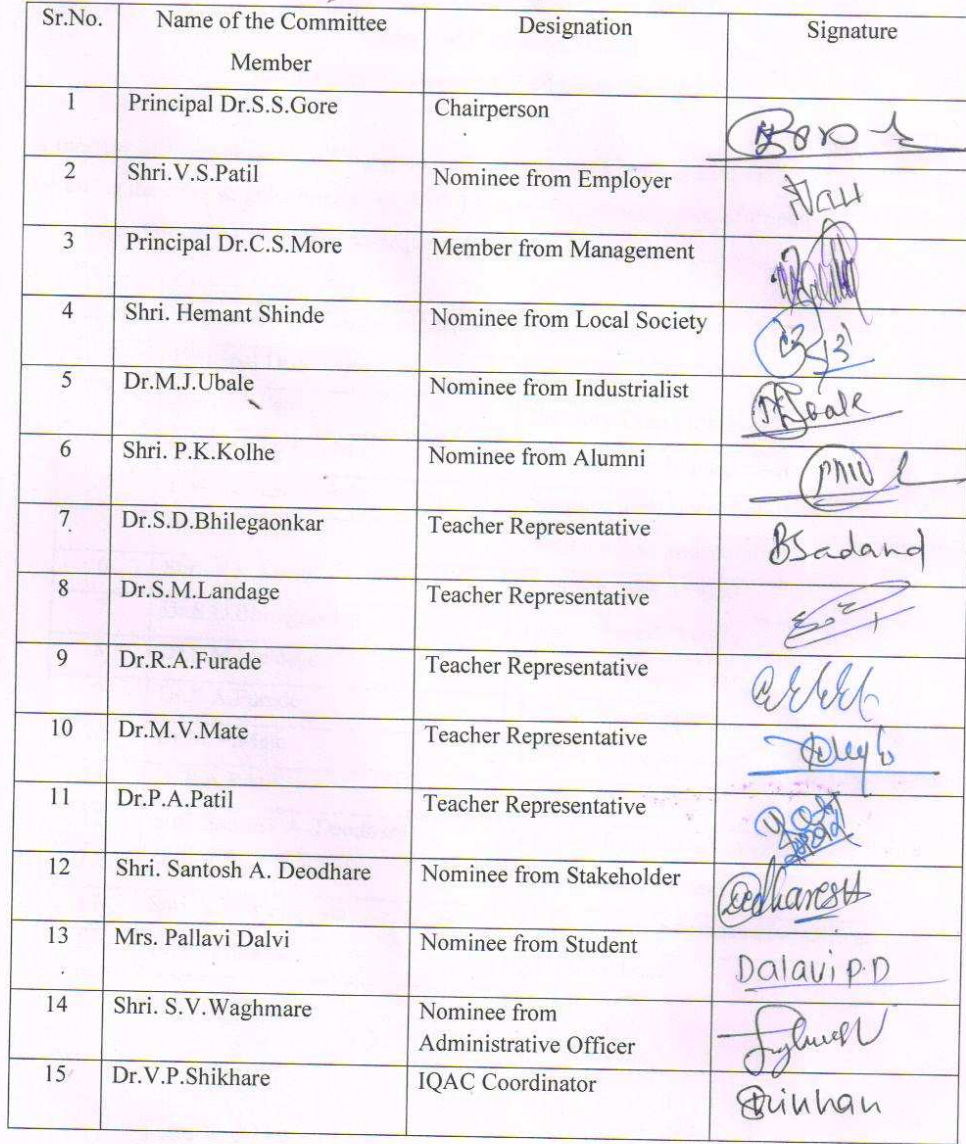 Sr.No. Name of the Committee Designation Signature
Member
1 Principal Dr.S.S.Gore Chairperson
2 Shri.V.S.Patil Nominee from Employer
3 Principal Dr.C.S.More Member from Management
4 Shri. Hemant Shinde Nominee from Local Society
5 Dr.M.J.Ubale Nominee from Industrialist
6 Shri. P.K.Kolhe Nominee from Alumni
7 Dr.S.D.Bhilegaonkar Teacher Representative BSadand
8 Dr.S.M.Landage Teacher Representative
9 Dr.R.A.Furade Teacher Representative
10 Dr.M.V.Mate Teacher Representative
11 Dr.P.A.Patil Teacher Representative
12 Shri. Santosh A. Deodhare Nominee from Stakeholder
13 Mrs. Pallavi Dalvi Nominee from Student Dalavi P.D
14 Shri. S.V.Waghmare Nominee from
Administrative Officer
15 Dr.V.P.Shikhare IQAC Coordinator